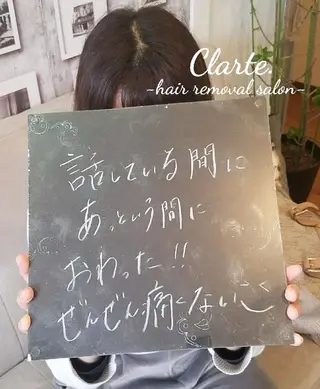 Clarte.
-hair removal salon-
話している間に
あっという間に
おわった!!
ぜんぜん痛くない